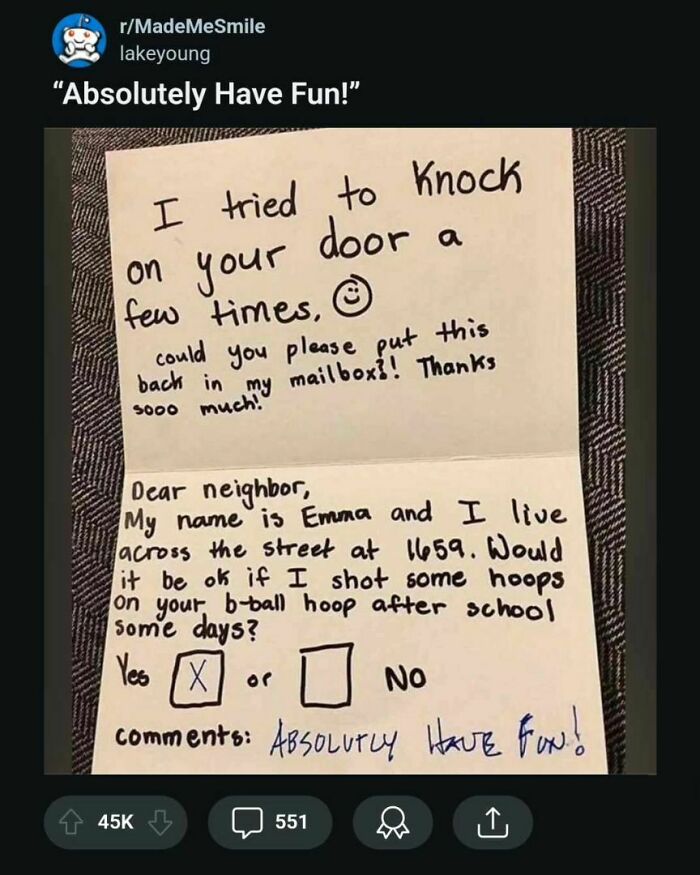 r/MadeMeSmile
lakeyoung
“Absolutely Have Fun!”
I tried to Knock
on your door a
few times. ☺
could you please put this
back in my mailbox?! Thanks
sooo much!
Dear neighbor,
My name is Emma and I live
across the street at 1659. Would
it be ok if I shot some hoops
on your b-ball hoop after school
some days?
Yes X or NO
comments: ABSOLUTLY HAVE FUN!
45K 551